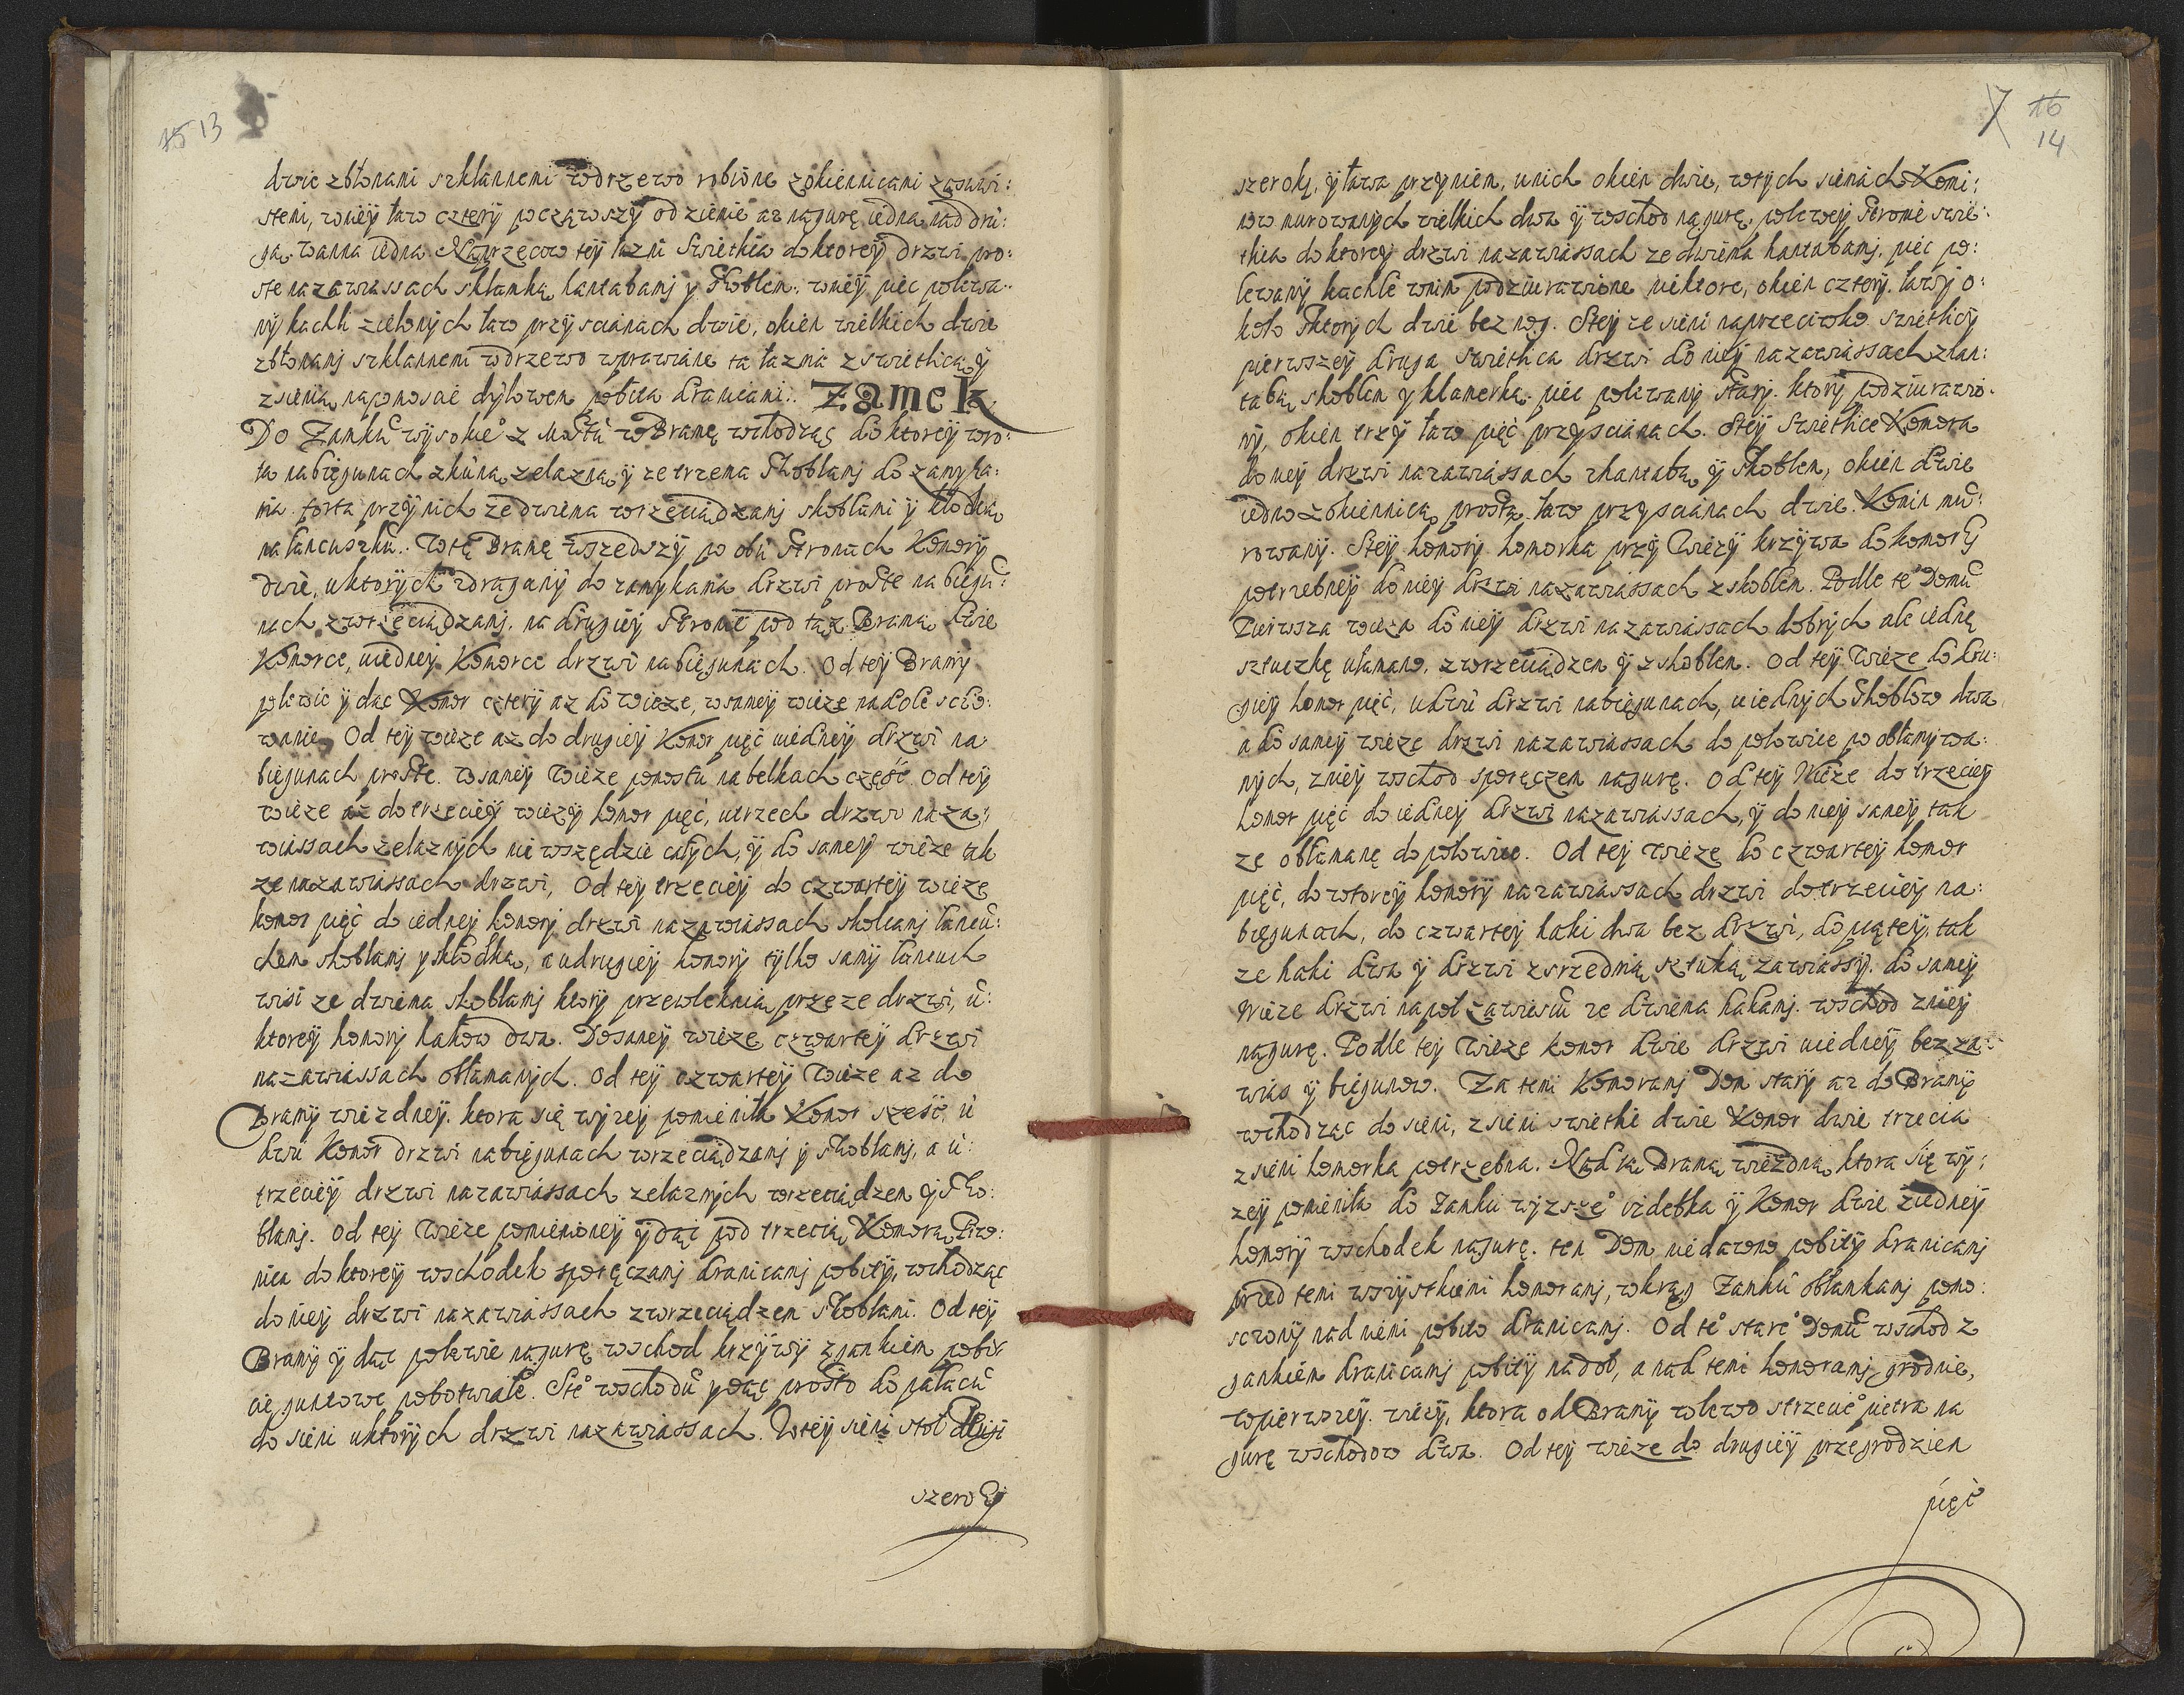 15 13
dwie zbłonami szklannemi wdrzewo robione zokiennicami zasuwi:
stemi, wnieÿ ław czterÿ począwszÿ od ziemie az nagurę iedna nad dru:
gą. wanna iedna. Naprzeciw teÿ łazni Swietlica doktoreÿ drzwi pro:
ste nazawiassach sklamką hantabami y Skoblem, wnieÿ piec polewa:
nÿ kachli zielonÿch ław przÿ scianach dwie, okien wielkich dwie
zbłonami szklannemi wdrzewo wprawiane ta łaznia zswietlicą ÿ
zsienią, naponosnie dÿlowem pobita dranicami. Zamek
Do Zamku wÿsokie° z Mostu w Bramę wchodząc do ktoreÿ wro:
ta nabiegunach zkuną zelazną ÿ ze trzema Skoblami do zamÿka:
nia. forta przÿ nich ze dwiema wrzeciądzami skoblami ÿ kłodką
na łancuszku. Wtę Bramę wszedszÿ po obu stronach Komorÿ
dwie, uktorÿch zdraganÿ do zamÿkania drzwi proste na biegu:
nach zwrzeciądzami. na drugieÿ Stronie pod tąz Bramą dwie
Komorce, uiedneÿ Komorce drzwi nabiegunach. Od teÿ Bramÿ
polewie ÿdąc Komor czterÿ az do wieze, wsameÿ wieze nadole scho:
wanie. Od teÿ wieze az do drugieÿ Komor pięć uiedneÿ drzwi na
biegunach proste. wsameÿ wieze pomostu nabelkach część. Od teÿ
wieze az do trzecieÿ wiezÿ komor pięć, utrzech drzwi naza:
wiassach zelaznÿch nie wszędzie całÿch, ÿ do sameÿ wieze tak
ze nazawiassach drzwi, Od teÿ trzecieÿ do czwarteÿ wieze
komor pięć do iedneÿ komorÿ drzwi nazawiassach skoblami łancu:
chem skoblami ÿskłodką, audrugieÿ komorÿ tÿlko samÿ łancuch
wisi ze dwiema skoblami ktorÿ przewleknią przeze drzwi, u:
ktoreÿ komorÿ hakow dwa. Dosameÿ wieze czwarteÿ drzwi
nazawiassach obłamanÿch. Od teÿ czwarteÿ wieze az do
Bramÿ wiezdneÿ. ktora się wÿzeÿ pomieniła Komor sześć, u
dwu Komor drzwi nabiegunach wrzeciądzami ÿ skoblami, a u:
trzecieÿ drzwi nazawiassach zelaznÿch wrzeciądzem ÿ sko:
blami. Od teÿ wieze pomienioneÿ ÿdąc pod trzecią Komorą Piw:
nica doktoreÿ wschodek sporęczami dranicami pobitÿ, wchodząc
do nieÿ drzwi nazawiassach zwrzeciądzem skoblami. Od teÿ
Bramÿ ÿdąc polewie nagurę wschod krzÿwÿ zgankiem pobi
cie guntowe pobotwiałe. Ste° wschodu ÿdąc prosto do pałacu
do sieni uktorÿch drzwi nazawiassach. Wteÿ sieni stoł długi
szeroki
7 16
14
szeroki, ÿława przÿniem, unich okien dwie, wtÿch sieniach Komi:
now murowanÿch wielkich dwa ÿ wschod nagurę, poleweÿ stronie swie:
tlica do ktoreÿ drzwi nazawiassach zedwiema hantabami, piec po:
lewanÿ kachle wnim podziurawione niektore, okien czterÿ. ławÿ o:
koło sktorÿch dwie bez nog. Steÿ ze sieni naprzeciwko swietlicÿ
pierwszeÿ druga swietlica drzwi do nieÿ nazawiassach zhan:
tabą, skoblem ÿ klamerką. piec polewanÿ starÿ. ktorÿ podziurawio:
nÿ, okien trzÿ ław pięć przÿscianach. Steÿ Swietlice Komora
do nieÿ drzwi nazawiassach zhantabą ÿ skoblem, okien dwie
iedno zokiennicą prostą. ław przÿscianach dwie. Komin mu:
rowanÿ. Steÿ komorÿ komorka przÿ Wiezÿ krzÿwa dokomorÿ
potrzebneÿ do nieÿ drzwi nazawiassach zskoblem. Podle te° Domu
Pierwsza wieza do nieÿ drzwi nazawiassach dobrÿch ale iednę
sztuczkę ułamano, zwrzeciądzem ÿ zskoblem. Od teÿ Wieze do dru:
gieÿ komor pięć, udwu drzwi nabiegunach, uiednÿch Skoblow dwa
a do sameÿ wieze drzwi nazawiassach do połowice po obłamÿwa:
nÿch, znieÿ wschod sporęczem nagurę. Od teÿ Wieze do trzecieÿ
komor pięć do iedneÿ drzwi nazawiassach, ÿ do nieÿ sameÿ tak
ze obłamanę dopołowice. Od teÿ wieze do czwarteÿ komor
pięć, do wtoreÿ komorÿ nazawiassach drzwi dotrzecieÿ na:
biegunach, do czwarteÿ haki dwa bez drzwi, do piąteÿ, tak
ze haki dwa ÿ drzwi zsrzednią sztuką zawiassÿ. do sameÿ
Wieze drzwi napoł zawiesiu ze dwiema hakami. wschod znieÿ
nagurę. Podle teÿ Wieze komor dwie drzwi uiedneÿ bez za:
wias ÿ biegunow. Za temi Komorami Dom starÿ az do Bramÿ
wchodząc do sieni, zsieni swietlic dwie Komor dwie trzecia
zsieni komorka potrzebna. Nad tą Bramą wiezdną, ktora się wÿ:
zeÿ pomieniła do Zamku wÿzsze° izdebka ÿ Komor dwie ziedneÿ
komorÿ wschodek nagurę. ten Dom niedawno pobitÿ dranicami
przed temi wszÿstkiemi komorami, wkrąg Zamku obłankami pomo:
szczonÿ nad niemi pobito dranicami. Od te° stare° Domu wschod z
gankiem dranicami pobitÿ nadoł, a nad temi komorami, grodnie,
wpierwszeÿ. wiezÿ, ktora od Bramÿ wlewo strzecie° pietra na
gurę wschodow dwa. Od teÿ wieze do drugieÿ przegrodzien
pięć